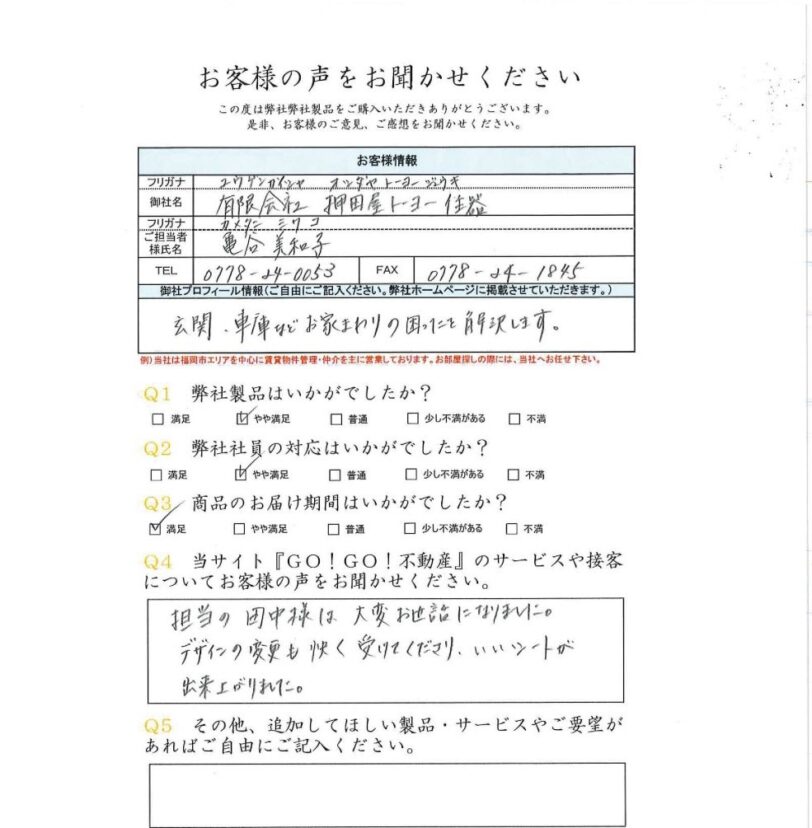 お客様の声をお聞かせください
この度は弊社弊社製品をご購入いただきありがとうございます。
是非、お客様のご意見、ご感想をお聞かせください。
お客様情報
フリガナ ユウゲンガイシャ オシダヤトーヨージュウキ
御社名 有限会社 押田屋トーヨー住器
フリガナ カメタニ ミワコ
ご担当者
様氏名 亀谷 美和子
TEL 0778-24-0053 FAX 0778-24-1845
御社プロフィール情報(ご自由にご記入ください。弊社ホームページに掲載させていただきます。)
玄関、車庫などお家まわりの困ったを解決します。
例)当社は福岡市エリアを中心に賃貸物件管理・仲介を主に営業しております。お部屋探しの際には、当社へお任せ下さい。
Q1 弊社製品はいかがでしたか?
□ 満足 ☑ やや満足 □ 普通 □ 少し不満がある □ 不満
Q2 弊社社員の対応はいかがでしたか?
□ 満足 ☑ やや満足 □ 普通 □ 少し不満がある □ 不満
Q3 商品のお届け期間はいかがでしたか?
☑ 満足 □ やや満足 □ 普通 □ 少し不満がある □ 不満
Q4 当サイト『GO!GO!不動産』のサービスや接客
についてお客様の声をお聞かせください。
担当の田中様は大変お世話になりました。
デザインの変更も快く受けてくださり、いいシートが
出来上がりました。
Q5 その他、追加してほしい製品・サービスやご要望が
あればご自由にご記入ください。